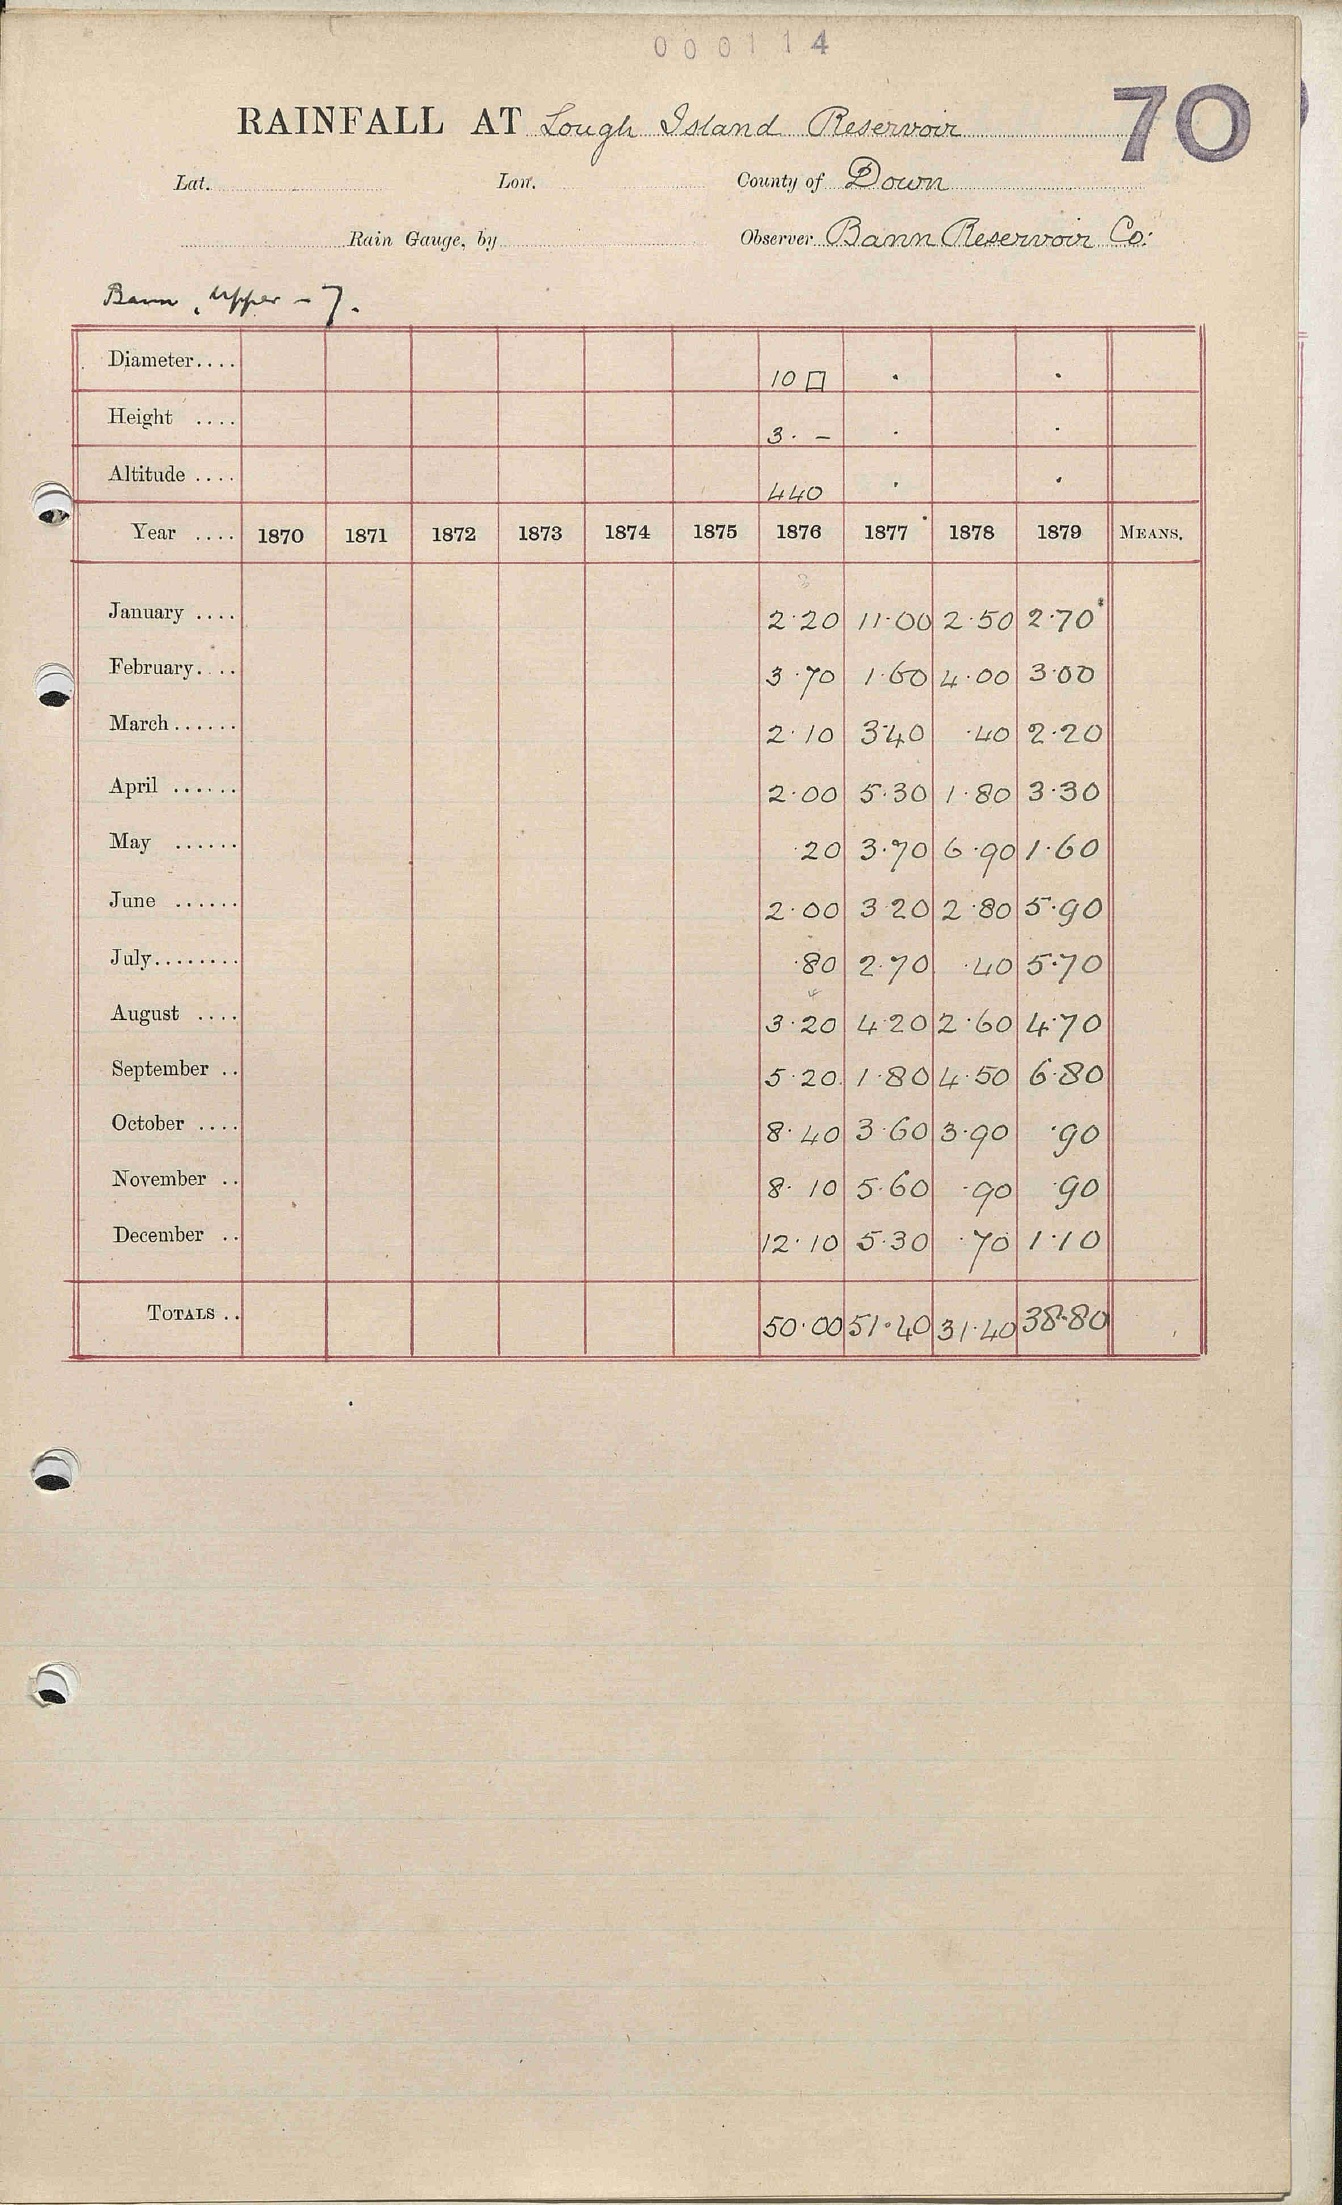 000114
70
RAINFALL AT Lough Island Reservoir
Lat. Lon. County of Down
Rain Gauge, by Observer Bann Reservoir Co:
Bann, Upper - 7.
Diameter.... 10 □ . .
Height .... 3. – . .
Altitude .... 440 . .
Year .... 1870 1871 1872 1873 1874 1875 1876 1877 1878 1879 MEANS.
3
January .... 2.20 11.00 2.50 2.70
February.... 3.70 1.60 4.00 3.00
March...... 2.10 3.40 .40 2.20
April ...... 2.00 5.30 1.80 3.30
May ...... .20 3.70 6.90 1.60
June ...... 2.00 3.20 2.80 5.90
July........ .80 2.70 .40 5.70
4
August .... 3.20 4.20 2.60 4.70
September .. 5.20 1.80 4.50 6.80
October .... 8.40 3.60 3.90 .90
November .. 8.10 5.60 .90 .90
December .. 12.10 5.30 .70 1.10
TOTALS .. 50.00 51.40 31.40 38.80